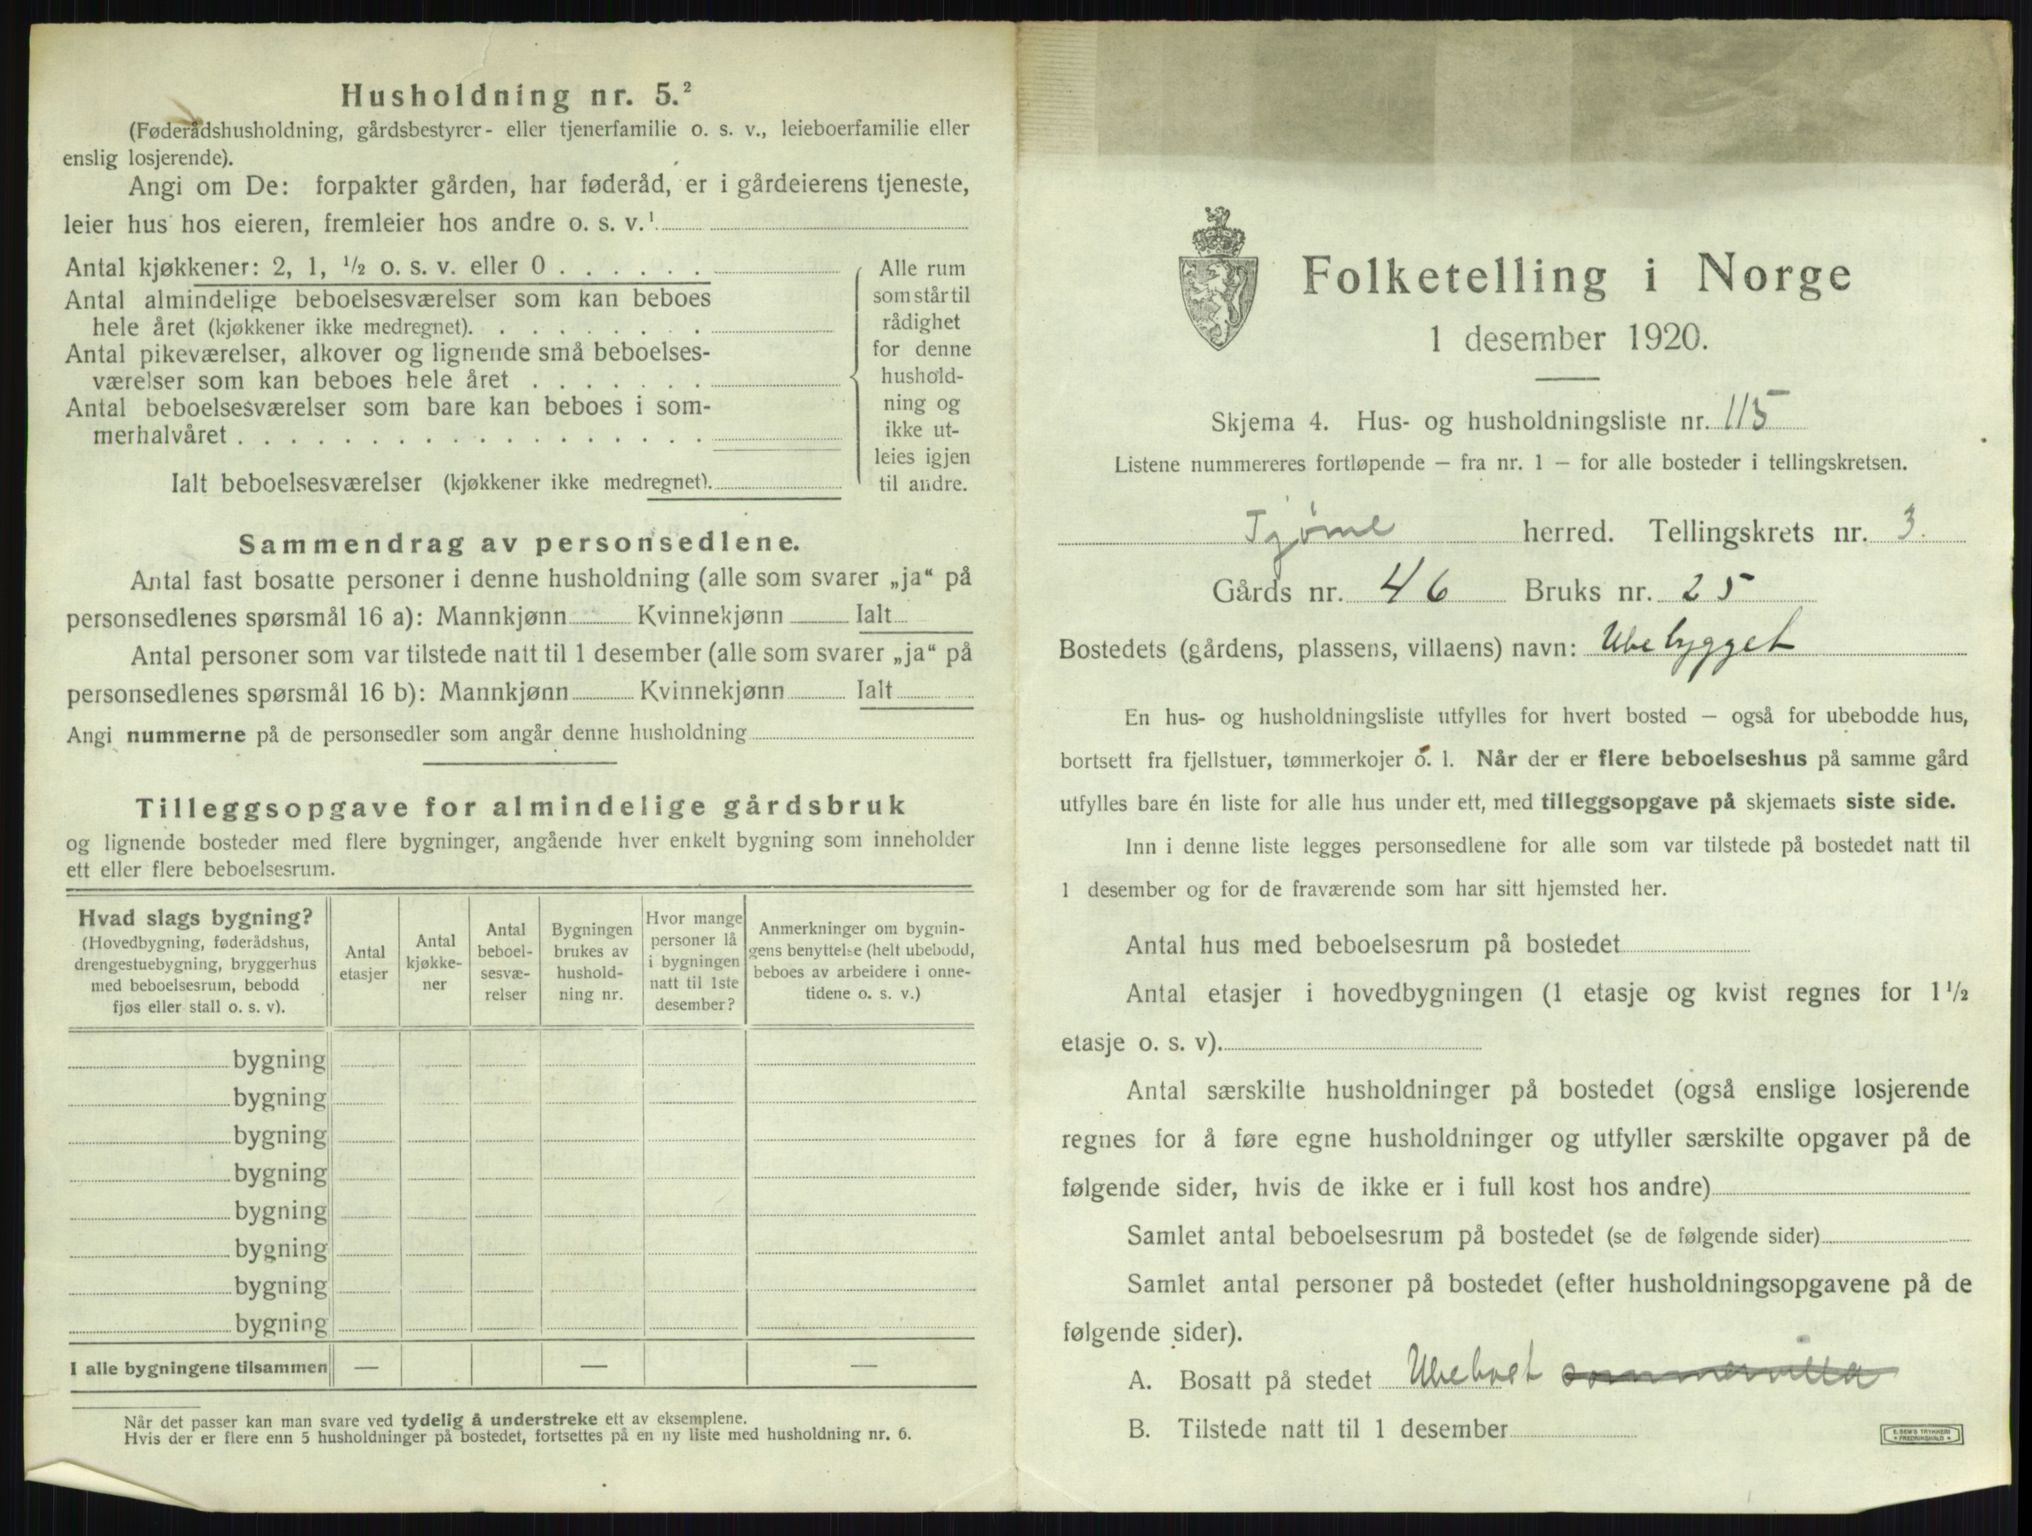 Husholdning nr. 5.²
(Føderådshusholdning, gårdsbestyrer- eller tjenerfamilie o. s. v., leieboerfamilie eller
enslig losjerende).
Angi om De: forpakter gården, har føderåd, er i gårdeierens tjeneste,
leier hus hos eieren, fremleier hos andre o. s. v.¹
Antal kjøkkener: 2, 1, ½ o. s. v. eller 0 . . . . . .
Antal almindelige beboelsesværelser som kan beboes
hele året (kjøkkener ikke medregnet). . . . . . . . .
Antal pikeværelser, alkover og lignende små beboelses-
værelser som kan beboes hele året . . . . . . .
Antal beboelsesværelser som bare kan beboes i som-
merhalvåret . . . . . . . . . . . . . . . . . .
Ialt beboelsesværelser (kjøkkener ikke medregnet).
Alle rum
som står til
rådighet
for denne
hushold-
ning og
ikke ut-
leies igjen
til andre.
Sammendrag av personsedlene.
Antal fast bosatte personer i denne husholdning (alle som svarer „ja“ på
personsedlenes spørsmål 16 a): Mannkjønn Kvinnekjønn Ialt
Antal personer som var tilstede natt til 1 desember (alle som svarer „ja“ på
personsedlenes spørsmål 16 b): Mannkjønn Kvinnekjønn Ialt
Angi nummerne på de personsedler som angår denne husholdning
Tilleggsopgave for almindelige gårdsbruk
og lignende bosteder med flere bygninger, angående hver enkelt bygning som inneholder
ett eller flere beboelsesrum.
Hvad slags bygning?
(Hovedbygning, føderådshus,
drengestuebygning, bryggerhus
med beboelsesrum, bebodd
fjøs eller stall o. s. v).
Antal
etasjer
Antal
kjøkke-
ner
Antal
beboel-
sesvæ-
relser
Bygningen
brukes av
hushold-
ning nr.
Hvor mange
personer lå
i bygningen
natt til 1ste
desember?
Anmerkninger om bygnin-
gens benyttelse (helt ubebodd,
beboes av arbeidere i onne-
tidene o. s. v.)
bygning
bygning
bygning
bygning
bygning
bygning
bygning
bygning
I alle bygningene tilsammen — — —
Når det passer kan man svare ved tydelig å understreke ett av eksemplene.
Hvis der er flere enn 5 husholdninger på bostedet, fortsettes på en ny liste med husholdning nr. 6.
Folketelling i Norge
1 desember 1920.
Skjema 4. Hus- og husholdningsliste nr. 115
Listene nummereres fortløpende – fra nr. 1 – for alle bosteder i tellingskretsen.
Tjøme herred. Tellingskrets nr. 3.
Gårds nr. 46 Bruks nr. 25
Bostedets (gårdens, plassens, villaens) navn: Ubebygget
En hus- og husholdningsliste utfylles for hvert bosted – også for ubebodde hus,
bortsett fra fjellstuer, tømmerkojer o. l. Når der er flere beboelseshus på samme gård
utfylles bare én liste for alle hus under ett, med tilleggsopgave på skjemaets siste side.
Inn i denne liste legges personsedlene for alle som var tilstede på bostedet natt til
1 desember og for de fraværende som har sitt hjemsted her.
Antal hus med beboelsesrum på bostedet
Antal etasjer i hovedbygningen (1 etasje og kvist regnes for 1½
etasje o. s. v).
Antal særskilte husholdninger på bostedet (også enslige losjerende
regnes for å føre egne husholdninger og utfyller særskilte opgaver på de
følgende sider, hvis de ikke er i full kost hos andre)
Samlet antal beboelsesrum på bostedet (se de følgende sider)
Samlet antal personer på bostedet (efter husholdningsopgavene på de
følgende sider).
A. Bosatt på stedet Ubeboet sommervilla
B. Tilstede natt til 1 desember
E. SEM'S TRYKKERI
FREDRIKSHALD